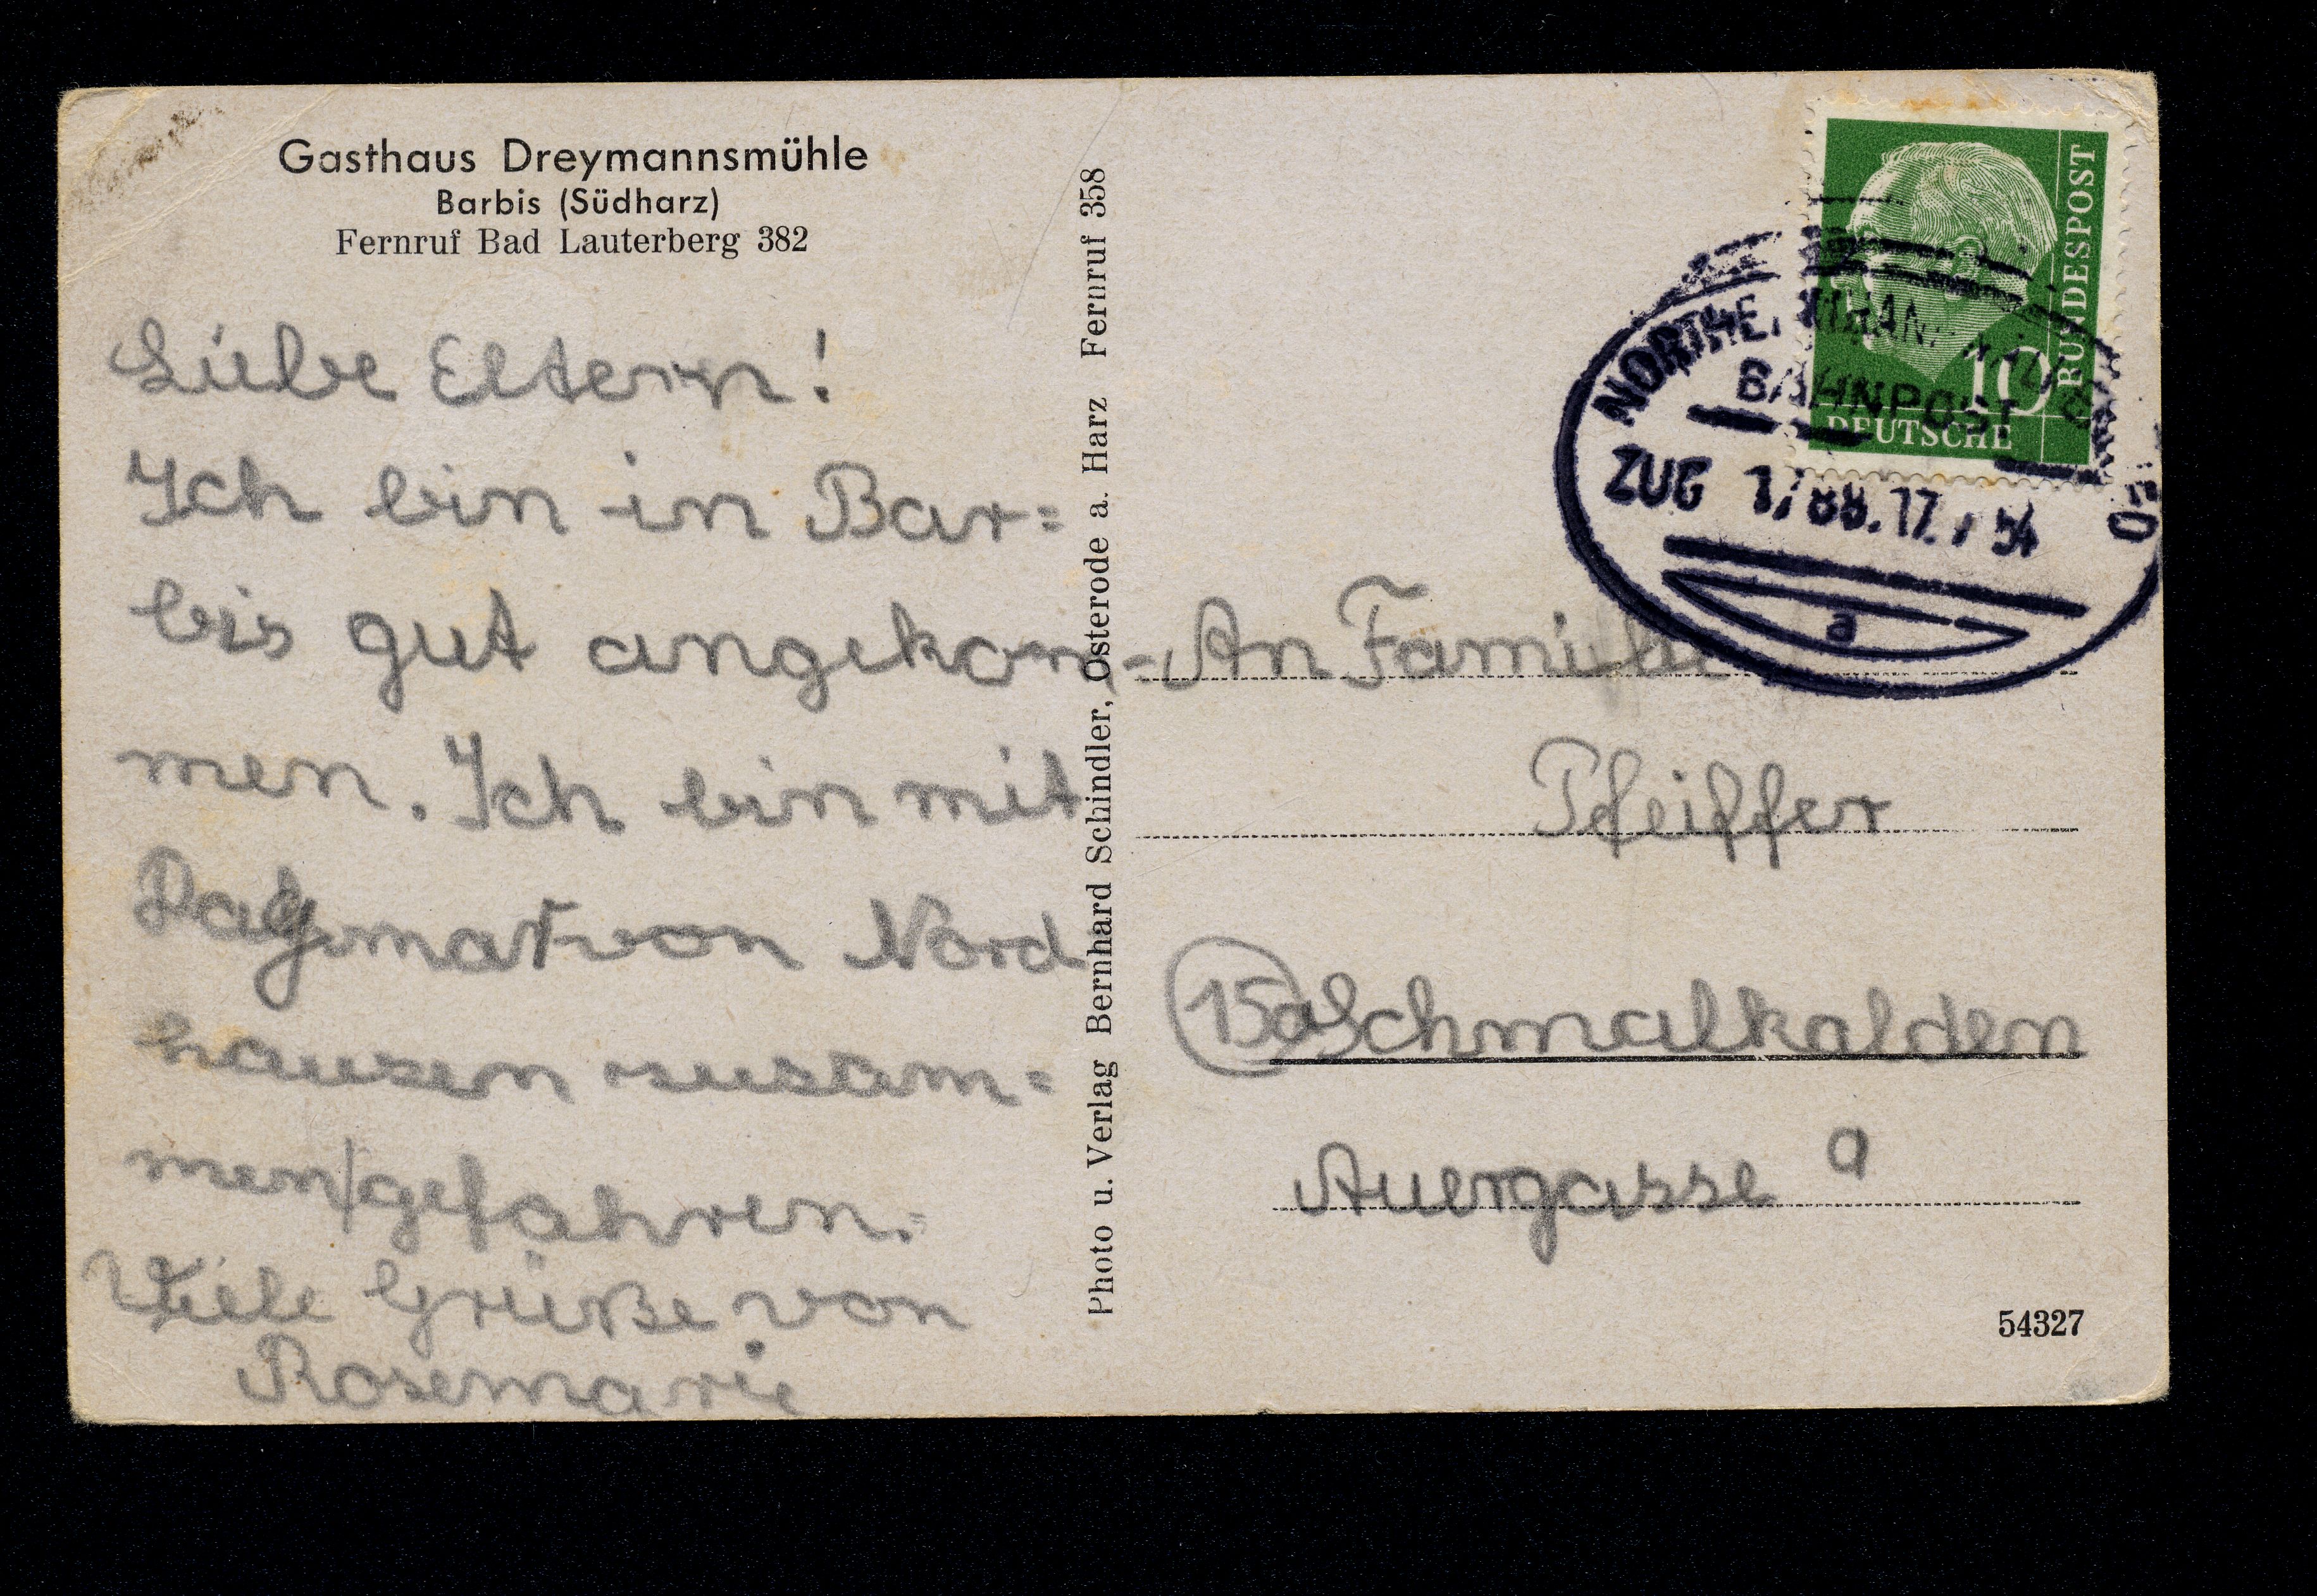 Gasthaus Dreymannsmühle
Barbis (Südharz)
Fernruf Bad Lauterberg 382
Liebe Eltern!
Ich bin in Bar=
bis gut angekom=
men. Ich bin mit
Dagmar von Nord
hausen zusam=
men gefahren.
Viele Grüße von
Rosemarie
Photo u. Verlag Bernhard Schindler, Osterode a. Harz Fernruf 358
DEUTSCHE
BUNDESPOST
10
BAHNPOST
ZUG
a
An Familie
Pfeiffer
15a Schmalkalden
Auergasse 9
54327